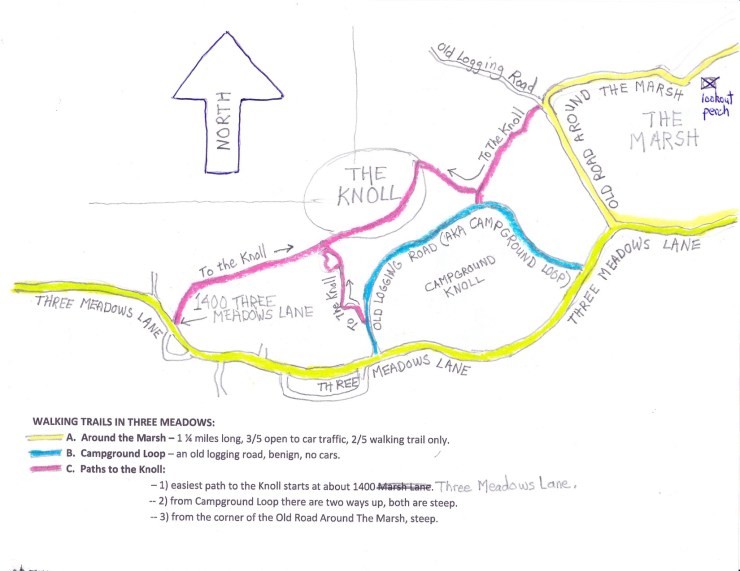 Old Logging Road
NORTH
OLD ROAD AROUND THE MARSH
lookout
perch
THE
MARSH
To the Knoll
THE
KNOLL
OLD ROAD AROUND
To the Knoll
OLD LOGGING ROAD (AKA CAMPGROUND LOOP)
CAMPGROUND
KNOLL
THREE MEADOWS LANE
To the Knoll
1400 THREE
MEADOWS LANE
THREE MEADOWS LANE
THREE MEADOWS LANE
WALKING TRAILS IN THREE MEADOWS:
A. Around the Marsh – 1 ¼ miles long, 3/5 open to car traffic, 2/5 walking trail only.
B. Campground Loop – an old logging road, benign, no cars.
C. Paths to the Knoll:
-- 1) easiest path to the Knoll starts at about 1400 Marsh Lane. Three Meadows Lane.
-- 2) from Campground Loop there are two ways up, both are steep.
-- 3) from the corner of the Old Road Around The Marsh, steep.